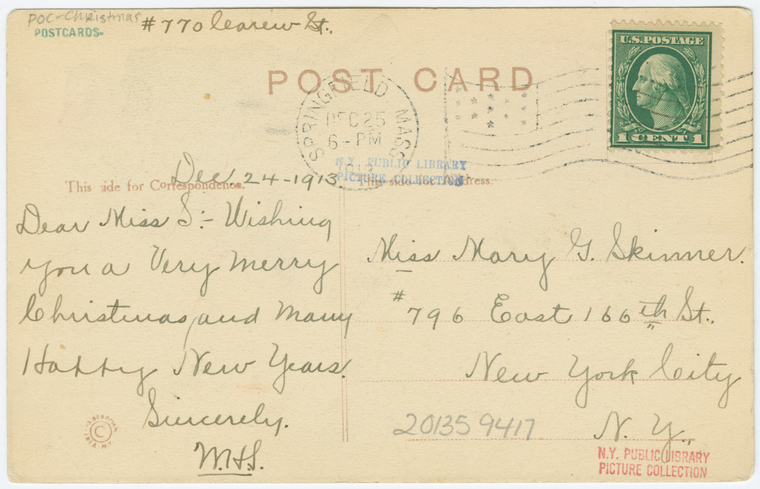 POC-Christmas
POSTCARDS-
#770 Carew St.
POST CARD
U.S. POSTAGE
1 CENT 1
SPRINGFIELD MASS.
DEC 25
6-PM
N.Y. PUBLIC LIBRARY
PICTURE COLLECTION
This side for Correspondence.
This side for Address.
Dec 24-1913
Dear Miss S:- Wishing
you a Very Merry
Christmas, and Many
Happy New Years.
Sincerely.
W.H.S.
Miss Mary G. Skinner.
#796 East 166th St.
New York City
N. Y.
20135 9417
N.Y. PUBLIC LIBRARY
PICTURE COLLECTION